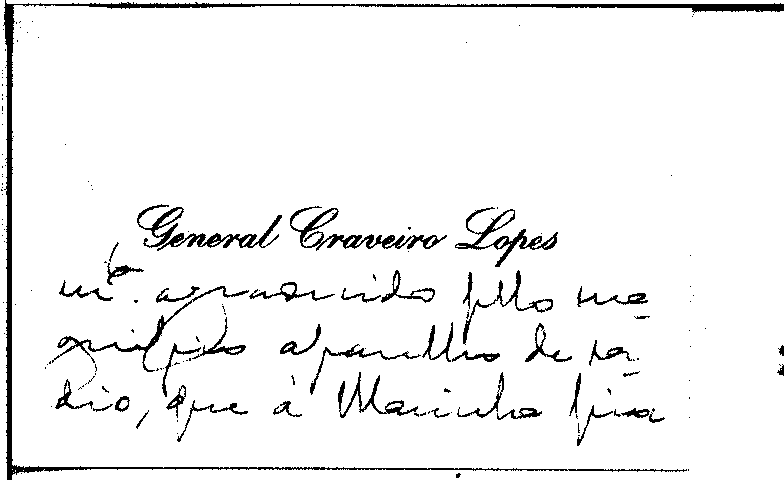 General Craveiro Lopes
mto. agradecido pelo ma-
gnífico aparelho de rá-
dio, que à Marinha fica